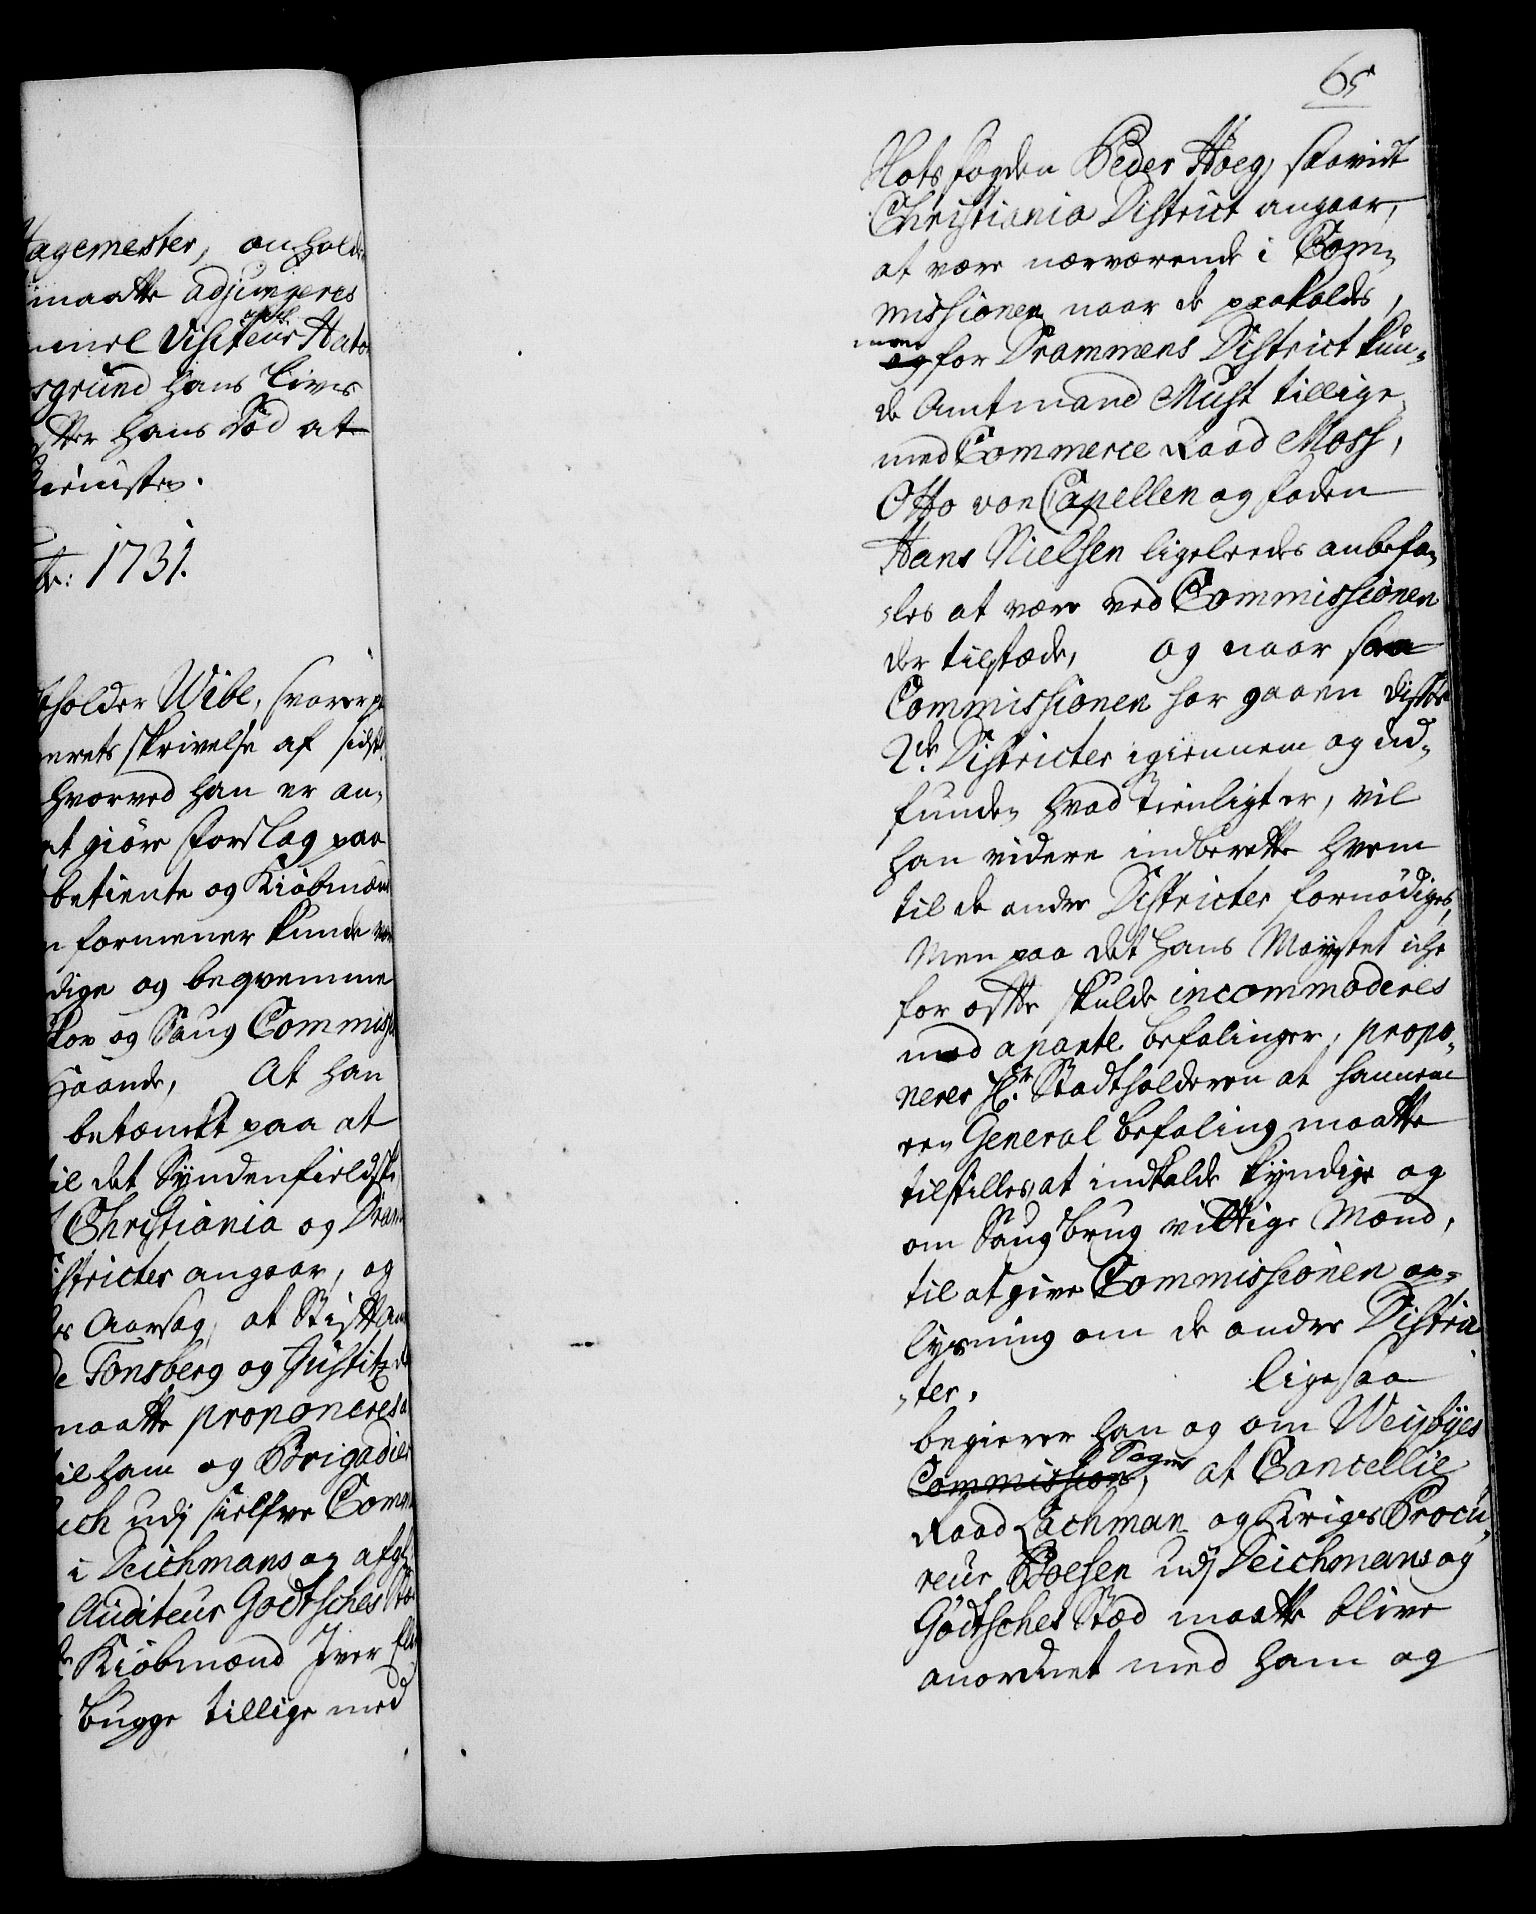 Hagemester, anhold
maatte adjungeres
miel Visiteur Hato
sgrund hans Livs
tter hans Død at
Tienisten.
br: 1731.
tholder Wibe, svarer p
merets skrivelse af sidst
hvorved han er an-
at giøre Forslag paa
betiente og Kiøbmænd
n formener kunde være
dige og beqvemme
Skov og Saug Commiss
Haande, At han
betænckt paa at
til det Syndenfieldske
Christiania og Dram
istricter angaar, og
Aarsag, at Stiftam
de Tonsberg og Justitz
maatte proponeres
til ham og Brigadier
ich udj sielfve Comm
i Deichmans og afg
Auditeur Godtsches Stæ
Kiøbmænd Iver El
Bugge tillige med
65
Slotsfogden Peder Høeg, saavidt
Christiania District angaar,
at være nærværende i Com-
missionen naar de paakaldes,
men
og for Drammens District kun-
de Amtmand Must tillige
med Commerce Raad Moss,
Otto von Capellen og Foden
Hans Nielsen ligeleedes anbefa-
les at være ved Commissionen
der tilstæde, og naar saa
Commissionen har gaaen disse
2de Districter igiennem og ud-
funden hvad tienligt er, vil
han videre indberette hvem
til de andre Districter fornødiges,
Men paa det Hans Mayestet iche
for ofte skulde incommoderes
med aparte befalinger, propo-
nerer Hr. Stadtholderen at hannem
een General befaling maatte
tilstilles, at indkalde kyndige og
om Saugbrug vittige Mænd,
til at give Commissionen op-
lysning om de andre Distric
ter. ligesaa
begierer han og om Weybyes
Sager
Commission, at Cancellie
Raad Lachman og Krigs Procu-
reur Boesen udj Deichmans og
Godtsches Stæd maatte blive
anordnet med ham og